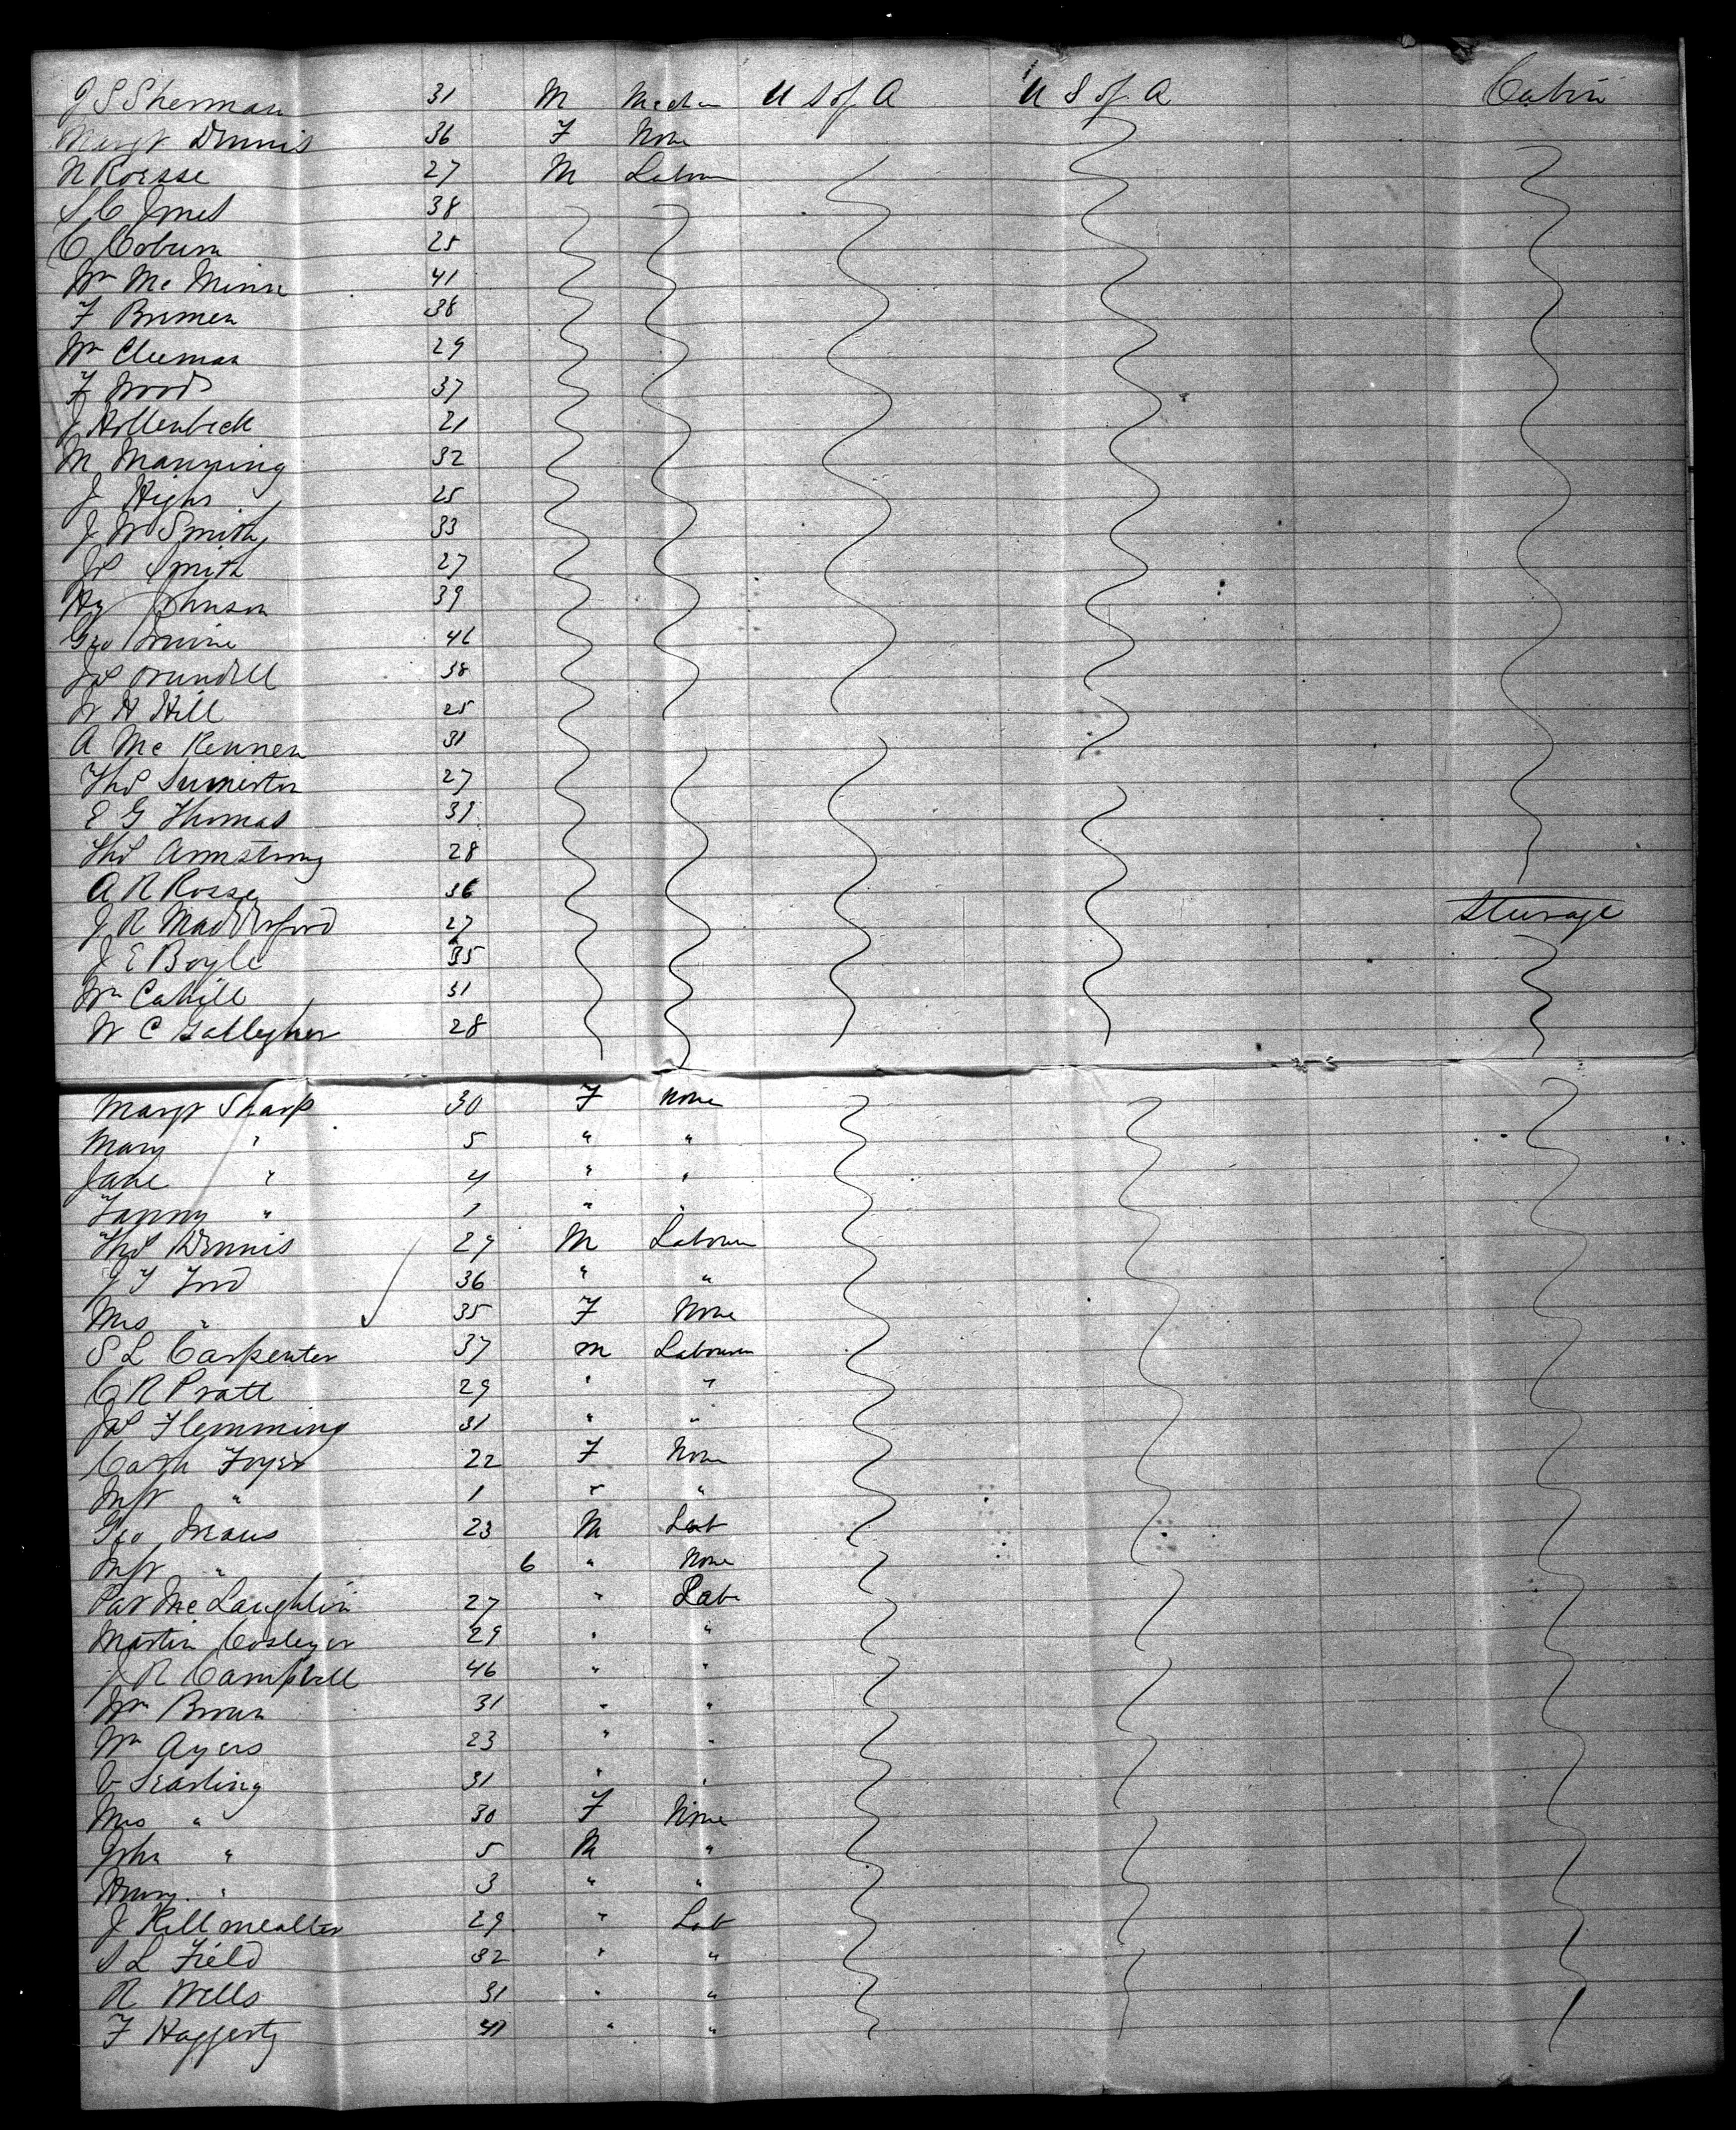 J S Sherman 31 M Mechn U S of A U S of A Cabin
Margt Dennis 36 F None
N Roesse 27 M Labour
S C Jones 38
C Coburn 25
Wm Mc Minn 41
F Bremen 38
Wm Cleeman 29
F Woods 37
J Hollenbeck 21
M Manning 32
J Highs 25
J W Smith 33
Js Smith 27
Hy Johnson 39
Geo Irvine 46
Js Trundell 38
W H Hill 25
A Mc Kennen 31
Ths Sumerton 27
E G Thomas 39
Ths Armstrong 28
A R Rosse 36
J R Maddeford 27 Steerage
J E Boyle 35
Wm Cahill 31
W C Gallegher 28
Margt Sharp 30 F None
Mary " 5 " "
Jane " 4 " "
Fanny " 1 " "
Ths Dennis 29 M Labourer
J T Ford 36 " "
Mrs " 35 F None
S L Carpenter 37 M Labourer
C R Pratt 29 " "
Js Flemming 31 " "
Cath Foyer 22 F None
Inft " 1 " "
Geo Means 23 M Lab
Inft " 6 " None
Pat Mc Laughlin 27 " Labr
Martin Cosleyer 29 " "
J R Campbell 46 " "
Wm Brown 31 " "
Wm Ayers 23 " "
V Searling 31 " "
Mrs " 30 F None
John " 5 M "
Henry " 3 " "
J Killmealter 29 " Lab
S L Field 32 " "
R Wells 31 " "
F Haggerty 41 " "